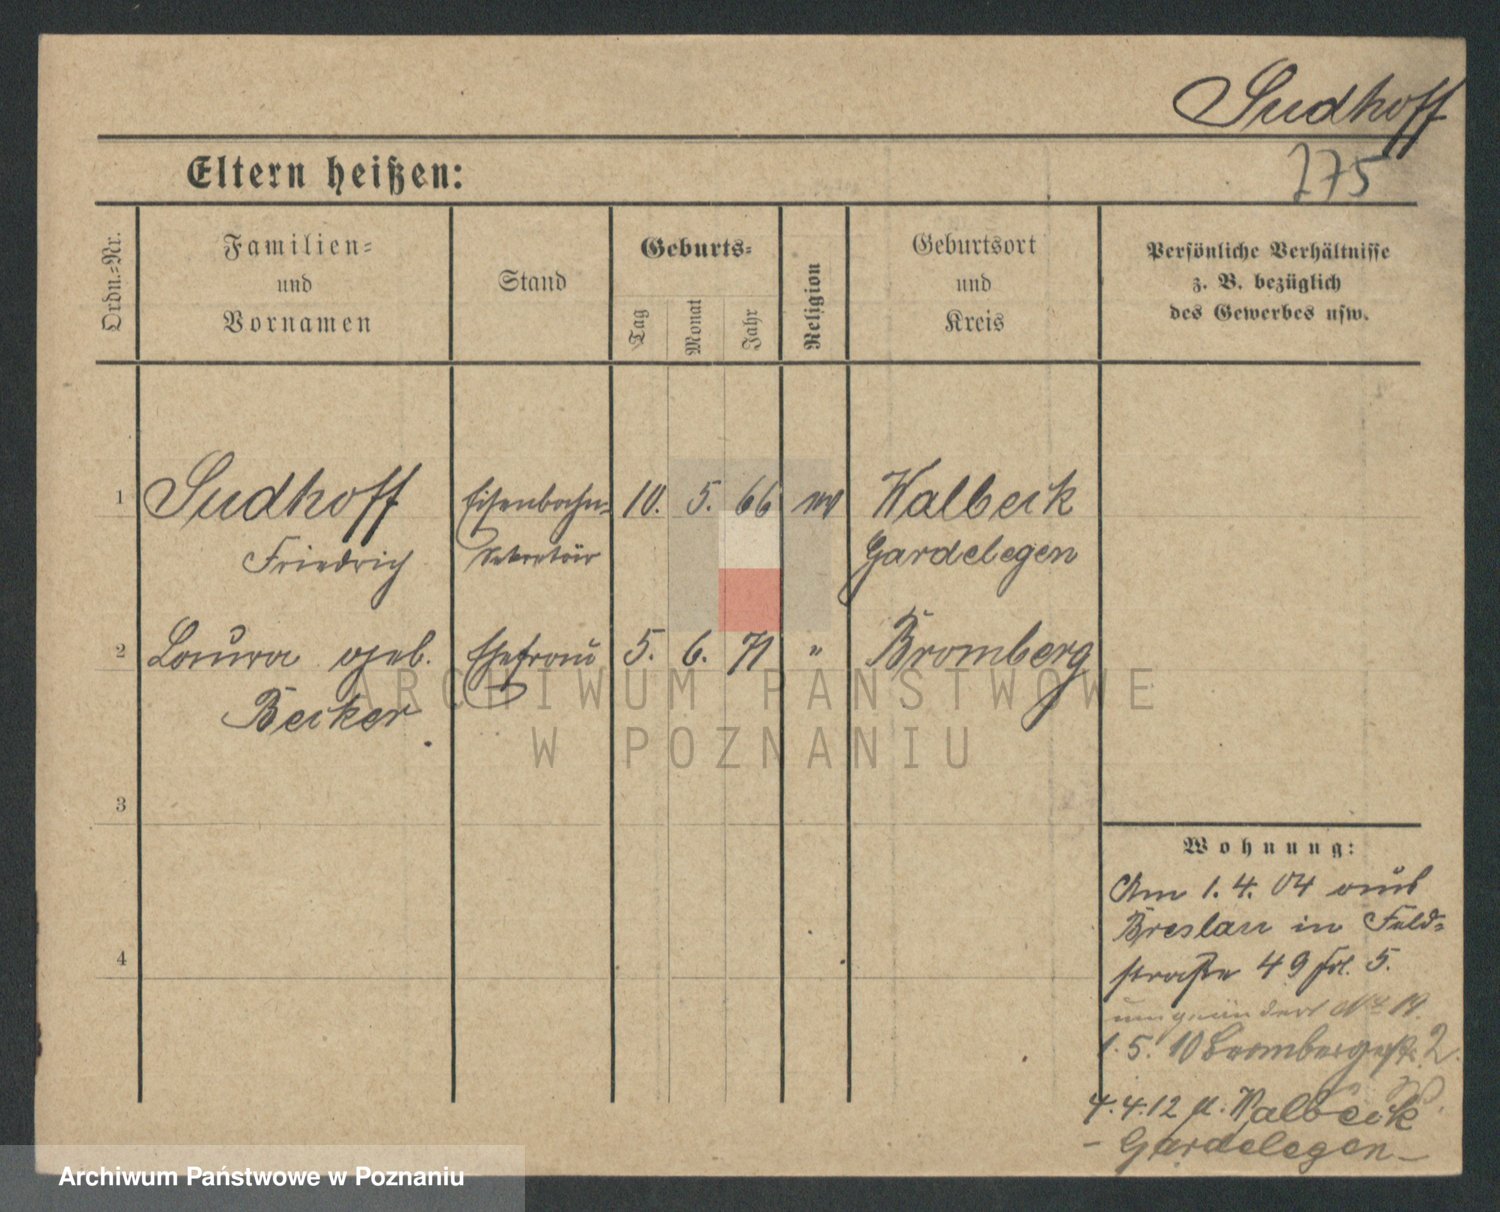 Sudhoff
275
Eltern heißen:
Ordn.-Nr.
Familien-
und
Vornamen
Stand
Geburts-
Tag
Monat
Jahr
Religion
Geburtsort
und
Kreis
Persönliche Verhältnisse
z. B. bezüglich
des Gewerbes usw.
1 Sudhoff Eisenbahn- 10. 5. 66 ev Walbeck
Friedrich Sekretär Gardelegen
2 Laura geb. Ehefrau 5. 6. 71 " Bromberg
Becker
3
4
Wohnung:
Am 1. 4. 04 aus
Breslau in Feld-
straße 49 5.
umgeändert No 19.
1. 5. 10 Brombergerstr. 2
4.4.12 n. Walbeck
- Gardelegen -
ARCHIWUM PAŃSTWOWE
W POZNANIU
Archiwum Państwowe w Poznaniu